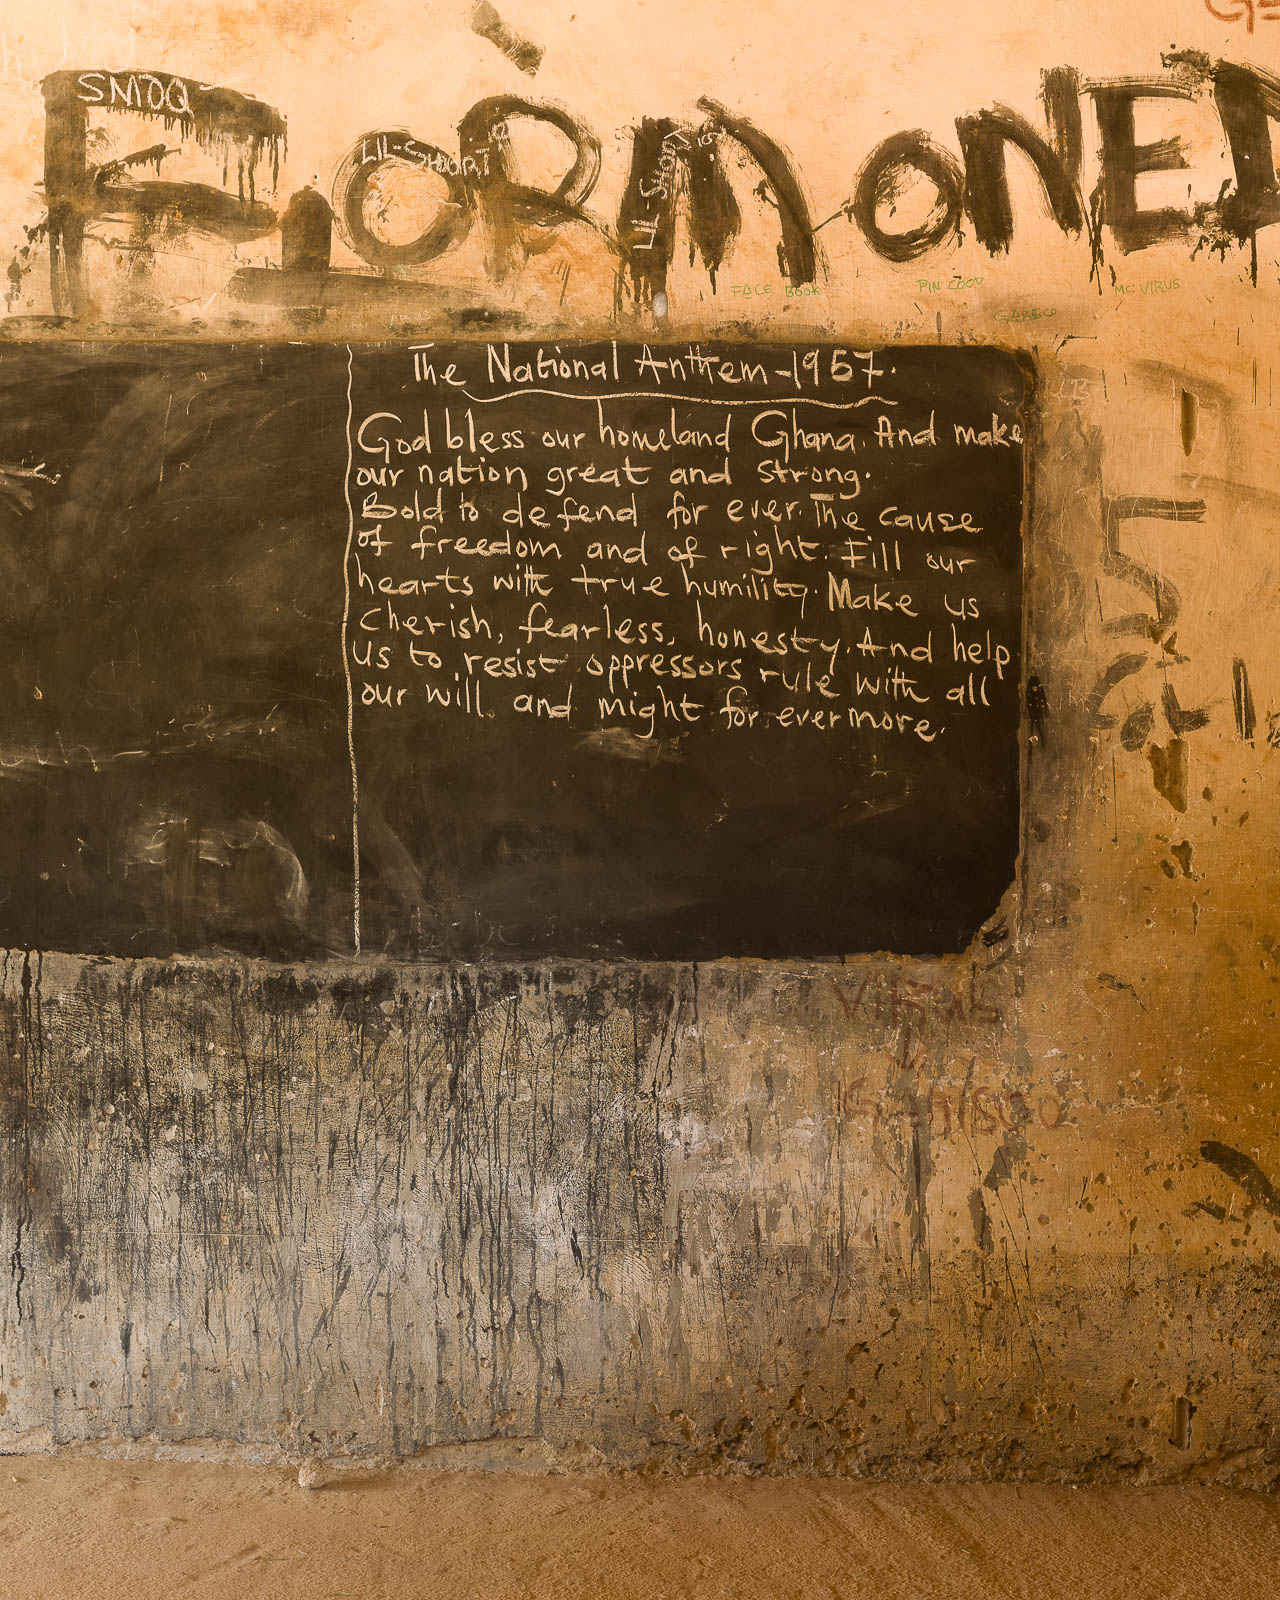 SMOQ
F.ORMONED
LIL-SHORT
LIL-SHORT
FACE BOOK
PIN COOD
MC VIRUS
GARBCO
The National Anthem-1957.
God bless our homeland Ghana. And make
our nation great and strong.
Bold to defend for ever. The cause
of freedom and of right. Fill our
hearts with true humility. Make us
Cherish, fearless, honesty. And help
us to resist oppressors rule with all
our will and might for evermore.